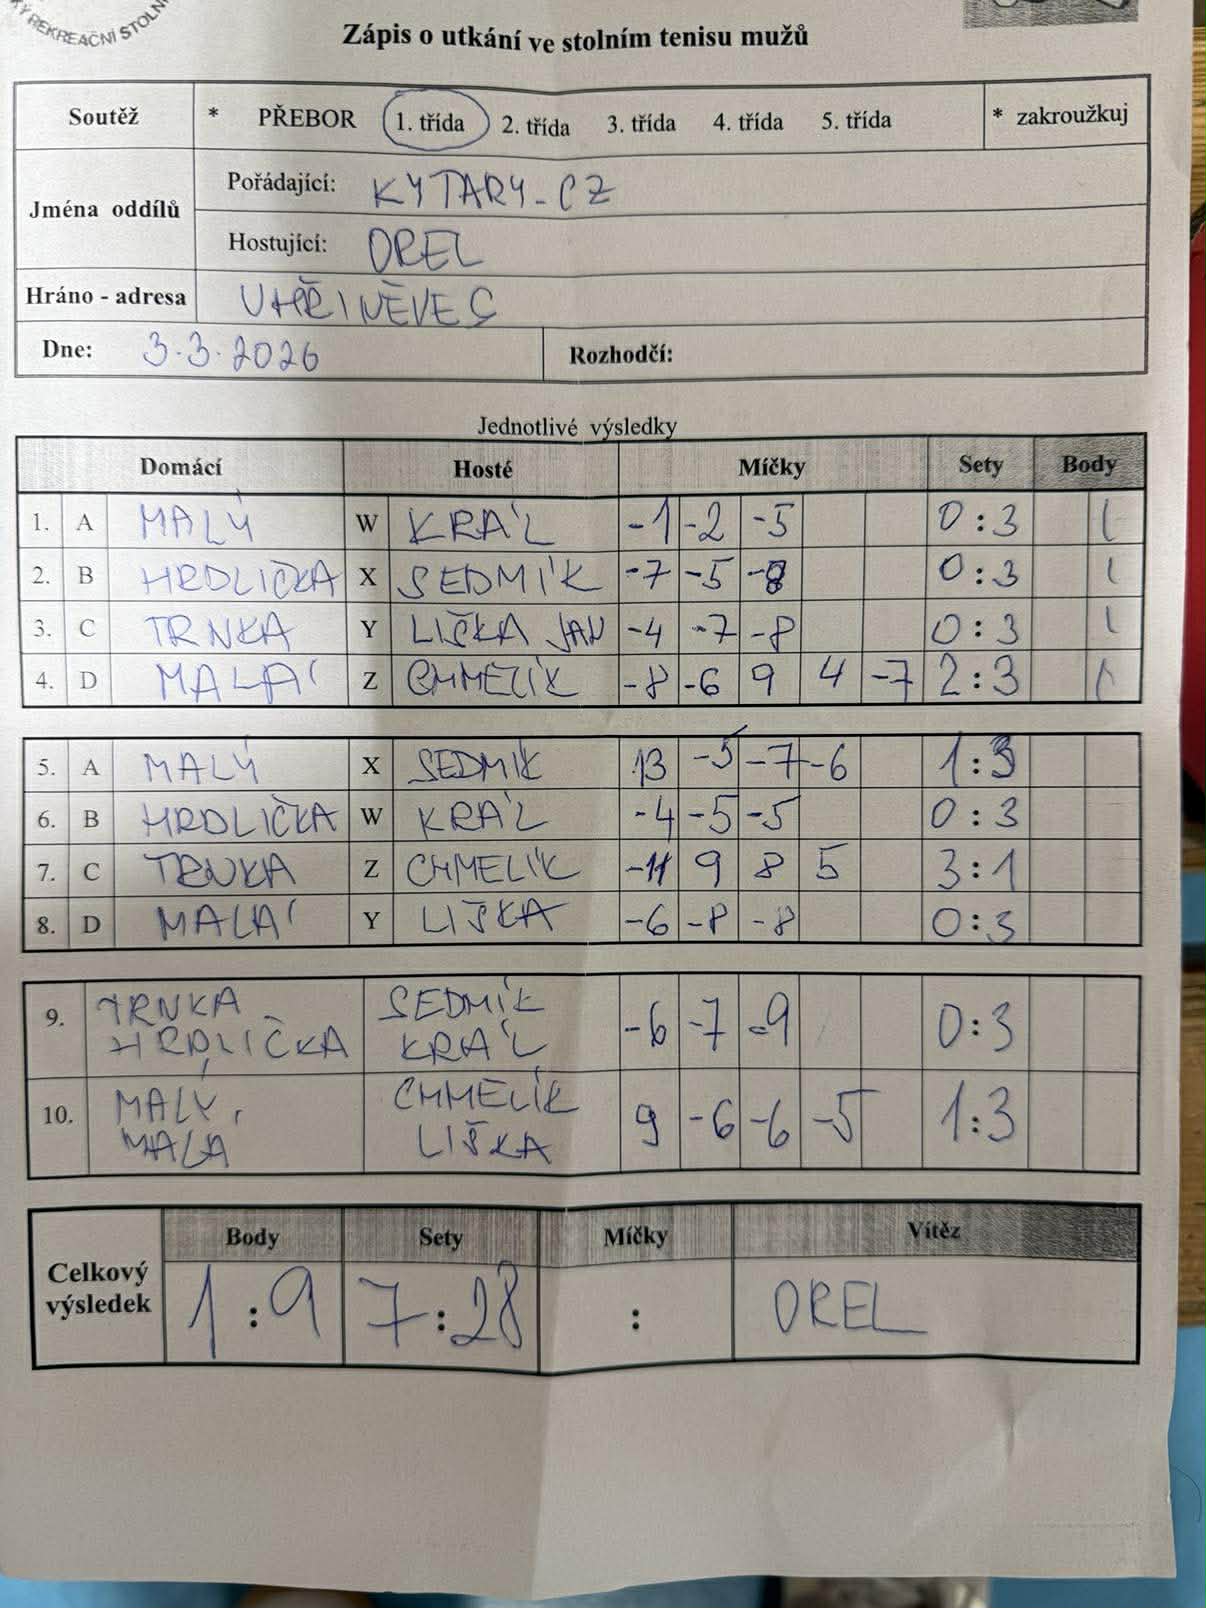 REKREAČNÍ STOLN
Zápis o utkání ve stolním tenisu mužů
Soutěž * PŘEBOR 1. třída 2. třída 3. třída 4. třída 5. třída * zakroužkuj
Jména oddílů
Pořádající: KYTARY-CZ
Hostující: OREL
Hráno - adresa UHŘINĚVES
Dne: 3.3.2026 Rozhodčí:
Jednotlivé výsledky
Domácí Hosté Míčky Sety Body
1. A MALÝ W KRÁL -1 -2 -5 0:3 1
2. B HRDLIČKA X SEDMÍK -7 -5 -8 0:3 1
3. C TRNKA Y LIŠKA JAN -4 -7 -8 0:3 1
4. D MALÁ Z CHMELÍK -8 -6 9 4 -7 2:3 1
5. A MALÝ X SEDMÍK 13 -5 -7 -6 1:3
6. B HRDLIČKA W KRÁL -4 -5 -5 0:3
7. C TRNKA Z CHMELÍK -11 9 8 5 3:1
8. D MALÁ Y LIŠKA -6 -8 -8 0:3
9. TRNKA SEDMÍK -6 -7 -9 0:3
HRDLIČKA KRÁL
10. MALÝ, CHMELÍK 9 -6 -6 -5 1:3
MALÁ LIŠKA
Celkový výsledek
Body Sety Míčky Vítěz
1:9 7:28 : OREL